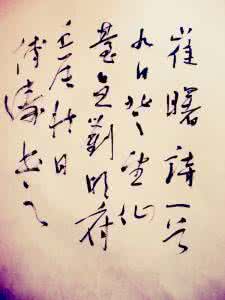 崔曙詩一首
九日登望仙
臺呈劉明府
壬辰秋日
濤